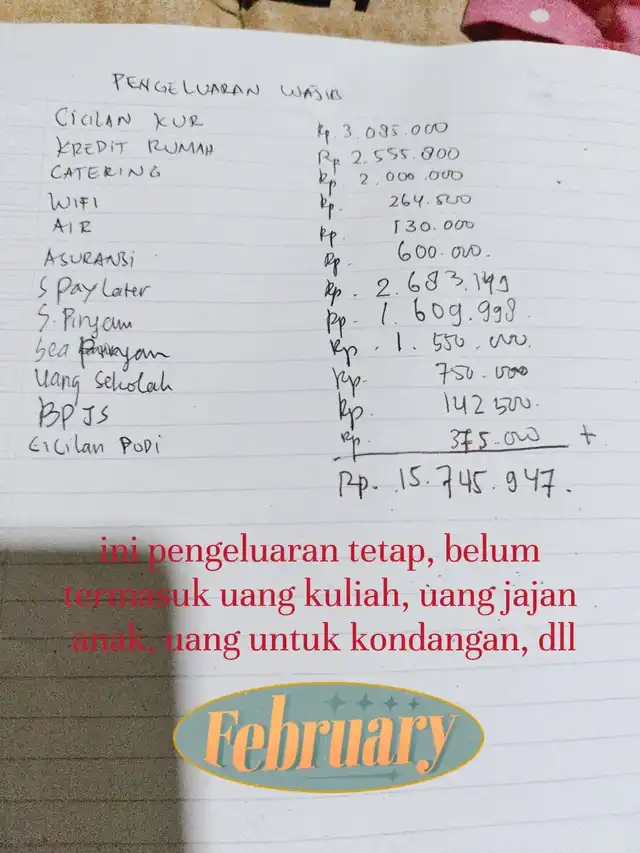 PENGELUARAN WAJIB
CICILAN KUR Rp. 3.085.000
KREDIT RUMAH Rp. 2.555.800
CATERING Rp. 2.000.000
WIFI Rp. 264.500
AIR Rp. 130.000
ASURANSI Rp. 600.000.
S PayLater Rp. 2.683.149
S. Pinjam Rp. 1.609.998.
Sea Pinjam Rp. 1.550.000.
Uang Sekolah Rp. 750.000
BPJS Rp. 142 500.
Cicilan PODI Rp. 375.000 +
Rp. 15.745.947.
ini pengeluaran tetap, belum
termasuk uang kuliah, uang jajan
anak, uang untuk kondangan, dll
February